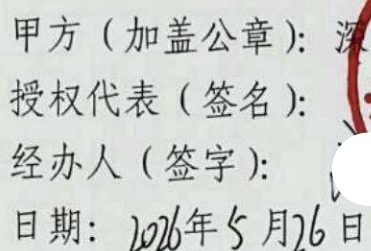 甲方（加盖公章）：深
授权代表（签名）：
经办人（签字）：
日期：2026年5月26日